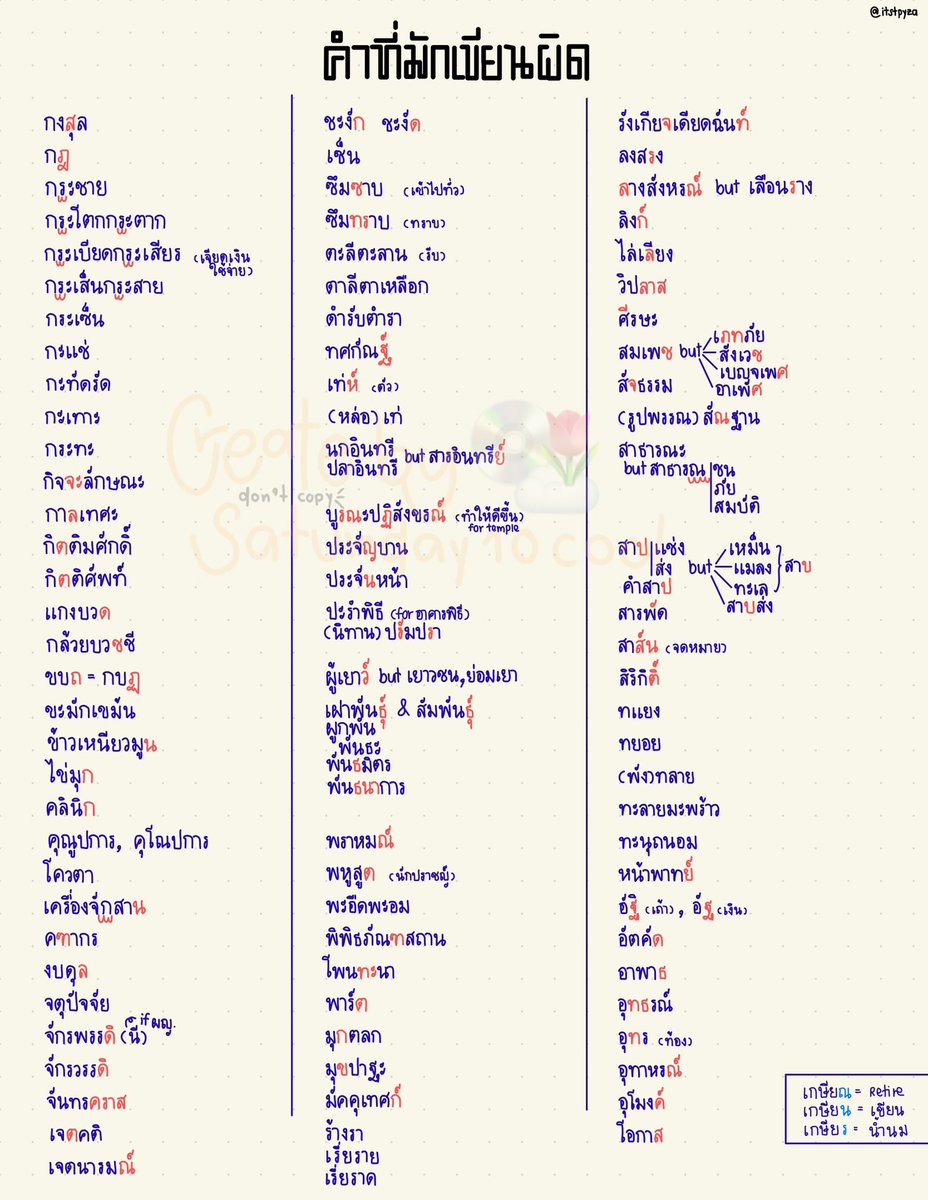 @itstpyza
คำที่มักเขียนผิด
กงสุล
กฎ
กระชาย
กระโตกกระตาก
กระเบียดกระเสียร (เจียดเงินใช้จ่าย)
กระเส็นกระสาย
กระเซ็น
กะแช่
กะทัดรัด
กะเทาะ
กระทะ
กิจจะลักษณะ
กาลเทศะ
กิตติมศักดิ์
กิตติศัพท์
แกงบวด
กล้วยบวชชี
ขบถ = กบฏ
ขะมักเขม้น
ข้าวเหนียวมูน
ไข่มุก
คลินิก
คุณูปการ, คุโณปการ
โควตา
เครื่องจักสาน
คฑากร
งบดุล
จตุปัจจัย
จักรพรรดิ (นี) if ผญ.
จักรวรรดิ
จันทรคราส
เจตคติ
เจตนารมณ์
ชะงัก ชะงัด
เซ็น
ซึมซาบ (เข้าไปทั่ว)
ซึมทราบ (ทราบ)
ตะลีตะลาน (รีบ)
ตาลีตาเหลือก
ตำรับตำรา
ทศกัณฐ์
เท่ห์ (ตัว)
(หล่อ) เท่
นกอินทรี
ปลาอินทรี but สารอินทรีย์
บูรณะปฏิสังขรณ์ (ทำให้ดีขึ้น) for temple
ประจัญบาน
ประจันหน้า
ปะรำพิธี (for อาคารพิธี)
(นิทาน) ปรัมปรา
ผู้เยาว์ but เยาวชน, ย่อมเยา
เผ่าพันธุ์ & สัมพันธุ์
ผูกพัน
พันธะ
พันธมิตร
พันธนาการ
พราหมณ์
พหูสูต (นักปราชญ์)
พะอืดพะอม
พิพิธภัณฑสถาน
โพนทะนา
พาร์ต
มุกตลก
มุขปาฐะ
มัคคุเทศก์
ร้างรา
เรี่ยราย
เรี่ยราด
รังเกียจเดียดฉันท์
ลงสรง
ลางสังหรณ์ but เลือนราง
ลิงก์
ไล่เลียง
วิปลาส
ศีรษะ
สมเพช but เภทภัย
สังเวช
เบญจเพศ
อาเพศ
สัจธรรม
(รูปพรรณ) สัณฐาน
สาธารณะ
but สาธารณ ชน
ภัย
สมบัติ
สาป แช่ง
สั่ง
คำสาป
but เหม็น
แมลง
ทะเล
สาบ
สาบสั่ง
สารพัด
สาส์น (จดหมาย)
สิริกิติ์
ทแยง
ทยอย
(พัง) ทลาย
ทะลายมะพร้าว
ทะนุถนอม
หน้าพาทย์
อัฐิ (เถ้า), อัฐ (เงิน)
อัตคัด
อาพาธ
อุทธรณ์
อุทร (ท้อง)
อุทาหรณ์
อุโมงค์
โอกาส
เกษียณ = Retire
เกษียน = เขียน
เกษียร = น้ำนม
Create by
don't copy